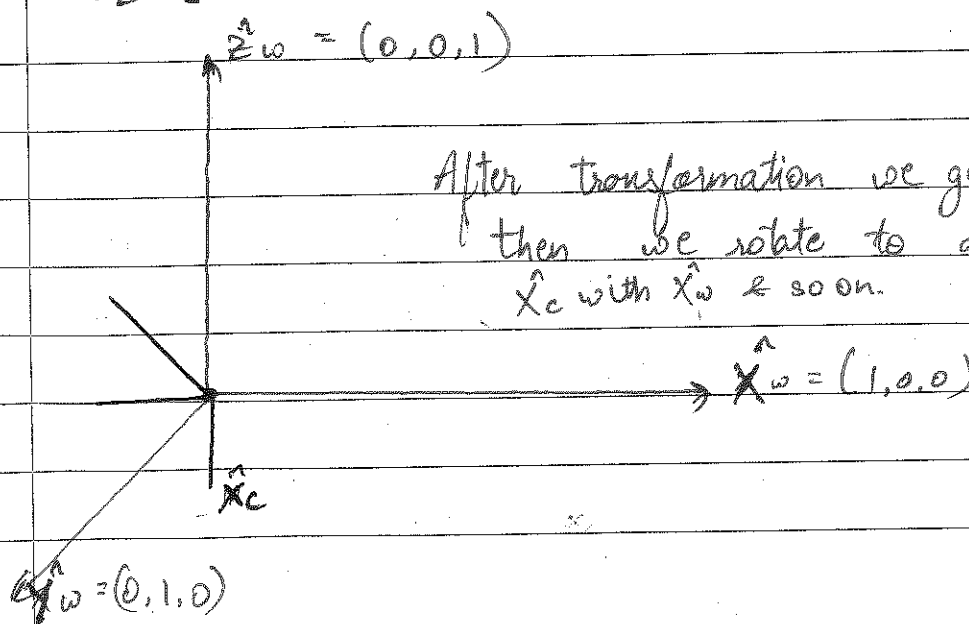 ẑw = (0,0,1)
After transformation we
then we rotate to
x̂c with x̂w & so on.
X̂w = (1,0,0)
x̂c
ŷw = (0,1,0)